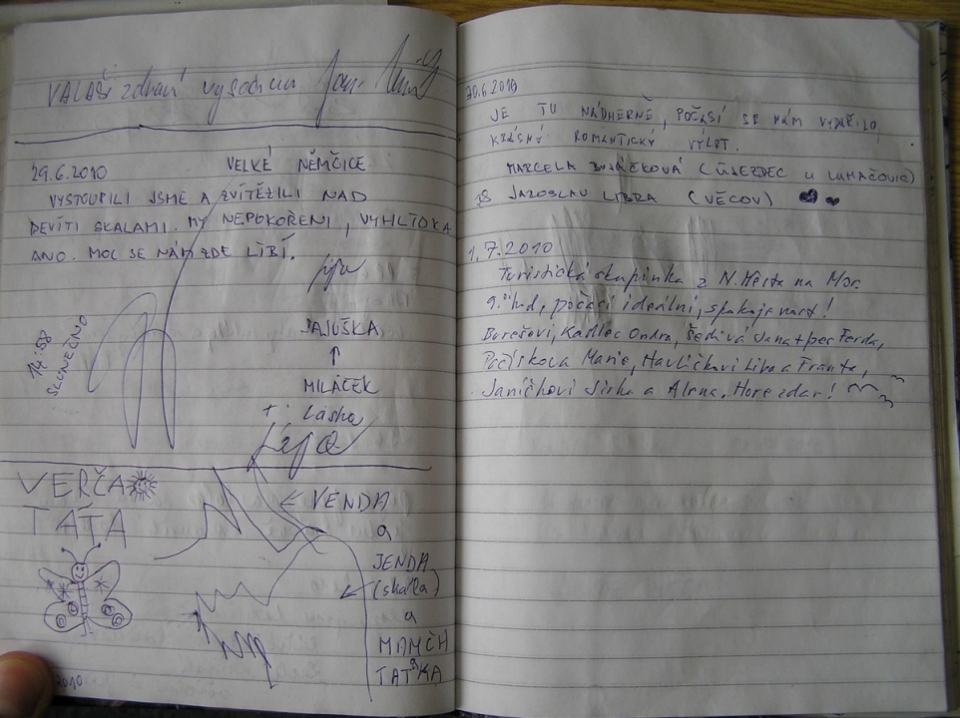 VALAŠI zdraví vysočinu
29.6.2010 VELKÉ NĚMČICE
VYSTOUPILI JSME A ZVÍTĚZILI NAD
DEVÍTI SKALAMI. MY NEPOKOŘENI, VYHLÍDKA
ANO. MOC SE NÁM ZDE LÍBÍ.
14:58
SLUNEČNO
JAJUŠKA
↑
MILÁČEK
+ Láska
VERČA
TÁŤA
← VENDA
a
JENDA
(skála)
a
MAMČA
TAŤKA
2010
30.6.2010
JE TU NÁDHERNĚ, POČASÍ SE NÁM VYDAŘILO,
KRÁSNÝ ROMANTICKÝ VÝLET.
MARCELA (ÚJEZDEC U LUHAČOVIC)
JAROSLAV LIBRA (VĚCOV)
1.7.2010
Turistická skupinka z N. Města na Mor.
9. úhd, počasí ideální, spokojenost!
Burešovi, Kadlec Ondra, Šedivá Jana + pes Ferda,
Počísková Marie, Havlíčkovi Liba a Franta,
Janíčkovi Jirka a Alena. Hore zdar!